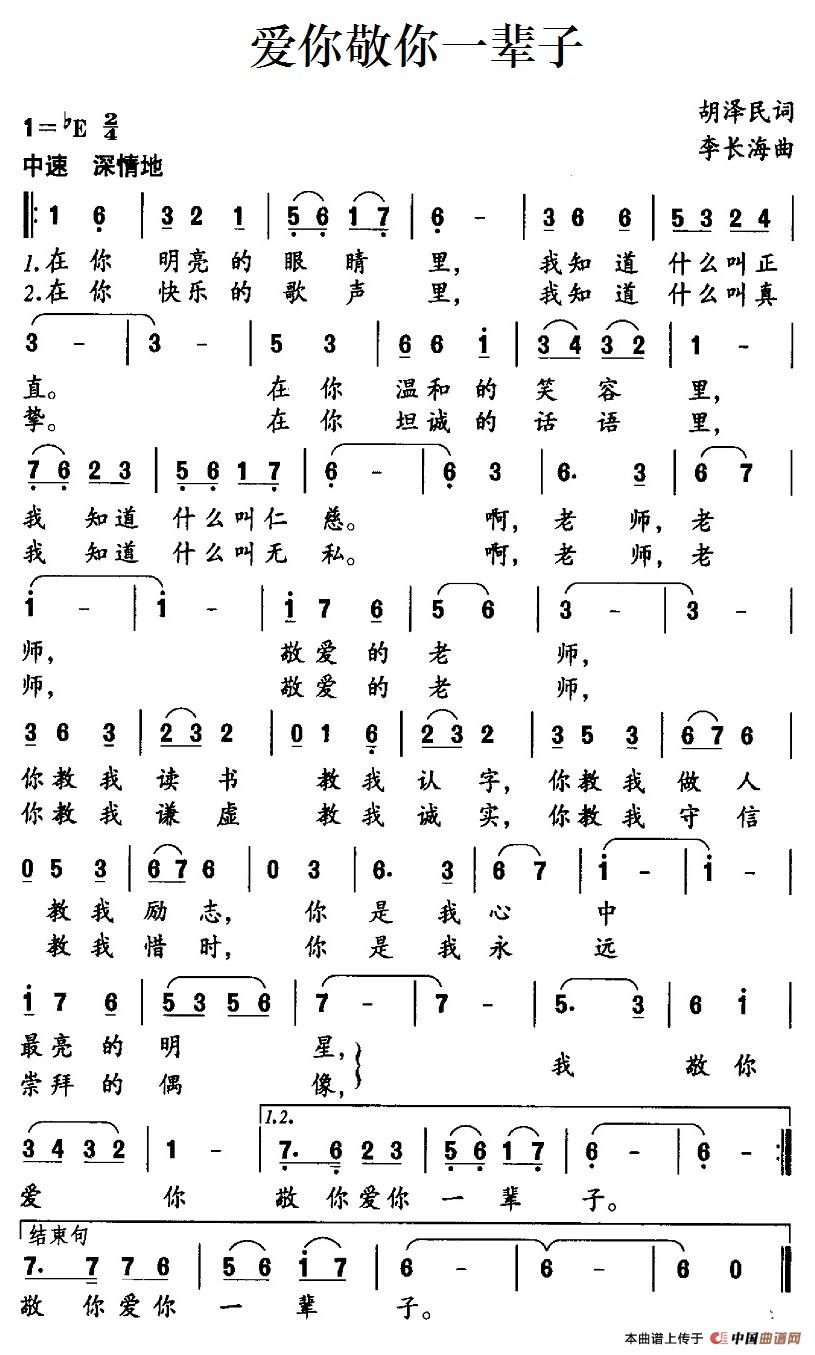 爱你敬你一辈子
胡泽民词
1=♭E 2/4
李长海曲
中速 深情地
‖: 1 6 | 3 2 1 | 5 6 1 7 | 6 - | 3 6 6 | 5 3 2 4 |
1.在你 明亮的眼睛里， 我知道 什么叫正
2.在你 快乐的歌声里， 我知道 什么叫真
3 - | 3 - | 5 3 | 6 6 i | 3 4 3 2 | 1 - |
直。 在你 温和的笑容里，
挚。 在你 坦诚的话语里，
7 6 2 3 | 5 6 1 7 | 6 - | 6 3 | 6. 3 | 6 7 |
我知道 什么叫仁慈。 啊，老师，老
我知道 什么叫无私。 啊，老师，老
i - | i - | i 7 6 | 5 6 | 3 - | 3 - |
师， 敬爱的老师，
师， 敬爱的老师，
3 6 3 | 2 3 2 | 0 1 6 | 2 3 2 | 3 5 3 | 6 7 6 |
你教我读书 教我认字，你教我做人
你教我谦虚 教我诚实，你教我守信
0 5 3 | 6 7 6 | 0 3 | 6. 3 | 6 7 | i - | i - |
教我励志， 你是我心中
教我惜时， 你是我永远
i 7 6 | 5 3 5 6 | 7 - | 7 - | 5. 3 | 6 i |
最亮的明星，
我敬你
崇拜的偶像，
1.2.
3 4 3 2 | 1 - | 7. 6 2 3 | 5 6 1 7 | 6 - | 6 - :‖
爱你 敬你爱你一辈子。
结束句
7. 7 7 6 | 5 6 i 7 | 6 - | 6 - | 6 0 ‖
敬你爱你一辈子。
本曲谱上传于 中国曲谱网